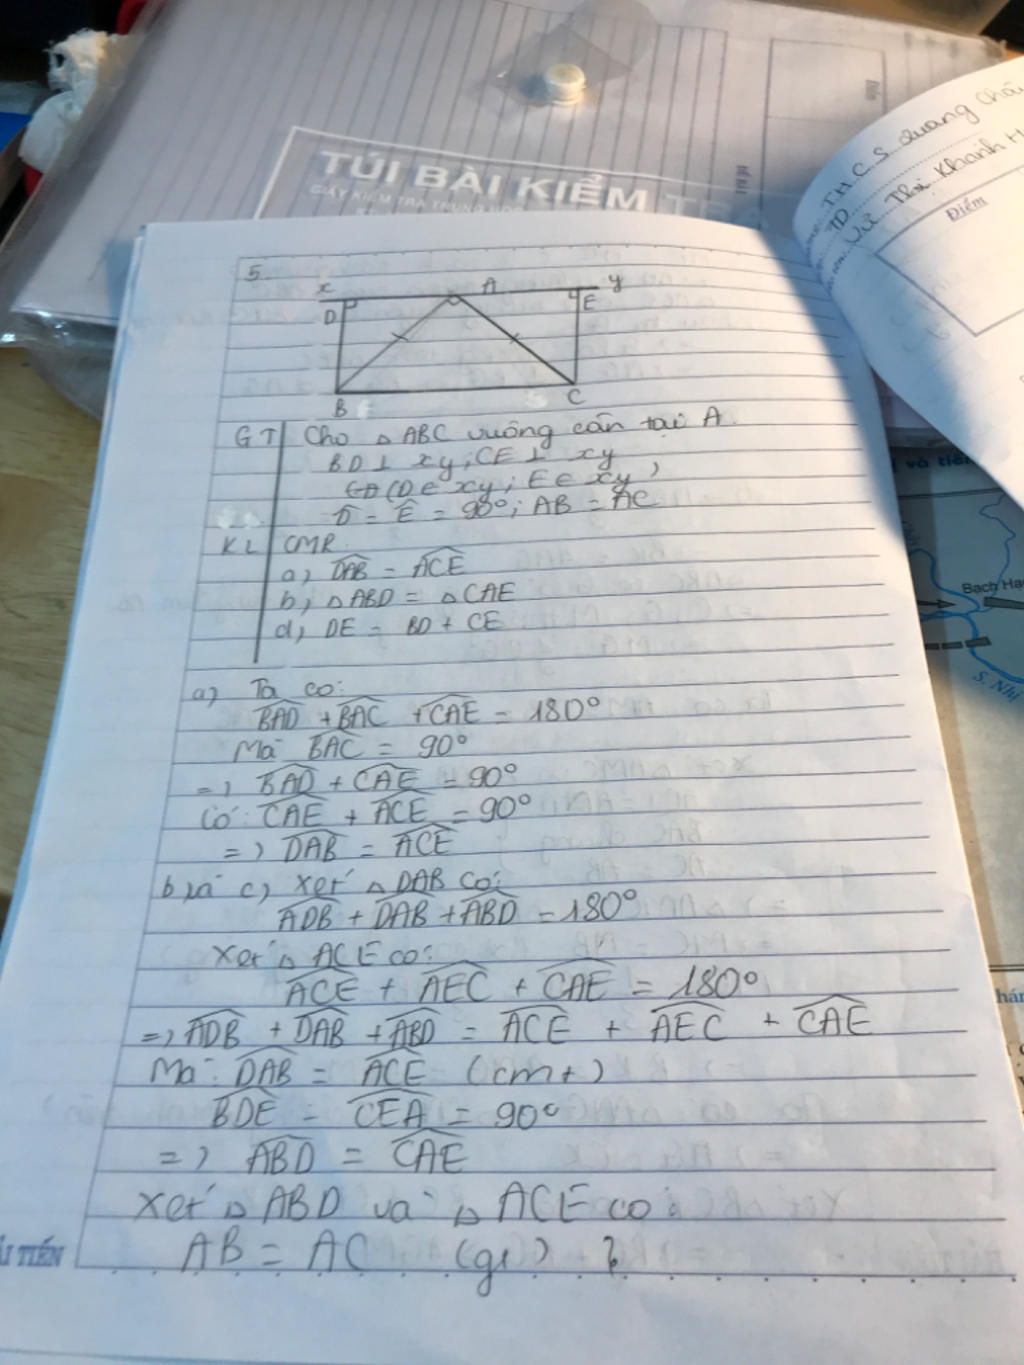 TÚI BÀI KIỂM TRA
GIẤY KIỂM TRA TRUNG
T.H.C.S Quang Châ
TD
Vũ Thị Khánh H
Điểm
5.
x A y
D E
B C
GT Cho △ABC vuông cân tại A.
BD ⊥ xy; CE ⊥ xy
(D ∈ xy; E ∈ xy)
D̂ = Ê = 90°; AB = AC
KL CMR
a, D͡AB = A͡CE
b, △ABD = △CAE
d, DE = BD + CE
a, Ta có:
B͡AD + B͡AC + C͡AE = 180°
Mà B͡AC = 90°
=> B͡AD + C͡AE = 90°
Có: C͡AE + A͡CE = 90°
=> D͡AB = A͡CE
b, và c, Xét △DAB có:
A͡DB + D͡AB + A͡BD = 180°
Xét △ACE có:
A͡CE + A͡EC + C͡AE = 180°
=> A͡DB + D͡AB + A͡BD = A͡CE + A͡EC + C͡AE
Mà: D͡AB = A͡CE (cmt)
B͡DE = C͡EA = 90°
=> A͡BD = C͡AE
Xét △ABD và △ACE có:
AB = AC (gt)
ẢI TIẾN
và tiế
Bạch Hạ
S. Nhị
hár